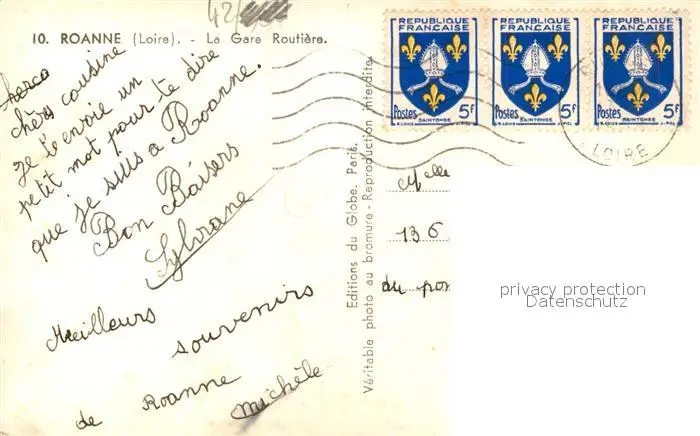 42/
10. ROANNE (Loire). - La Gare Routière.
chère cousine
je t'envoie un
petit mot pour te dire
que je suis a Roanne.
Bon Baisers
Sylviane
Meilleurs
souvenirs
de Roanne
Michèle
Editions du Globe, Paris.
Véritable photo au bromure - Reproduction interdite.
REPUBLIQUE FRANÇAISE
Postes 5F
SAINTONGE
REPUBLIQUE FRANÇAISE
Postes 5F
SAINTONGE
REPUBLIQUE FRANÇAISE
Postes 5F
SAINTONGE
LOIRE
Melle
136
du pon
privacy protection
Datenschutz